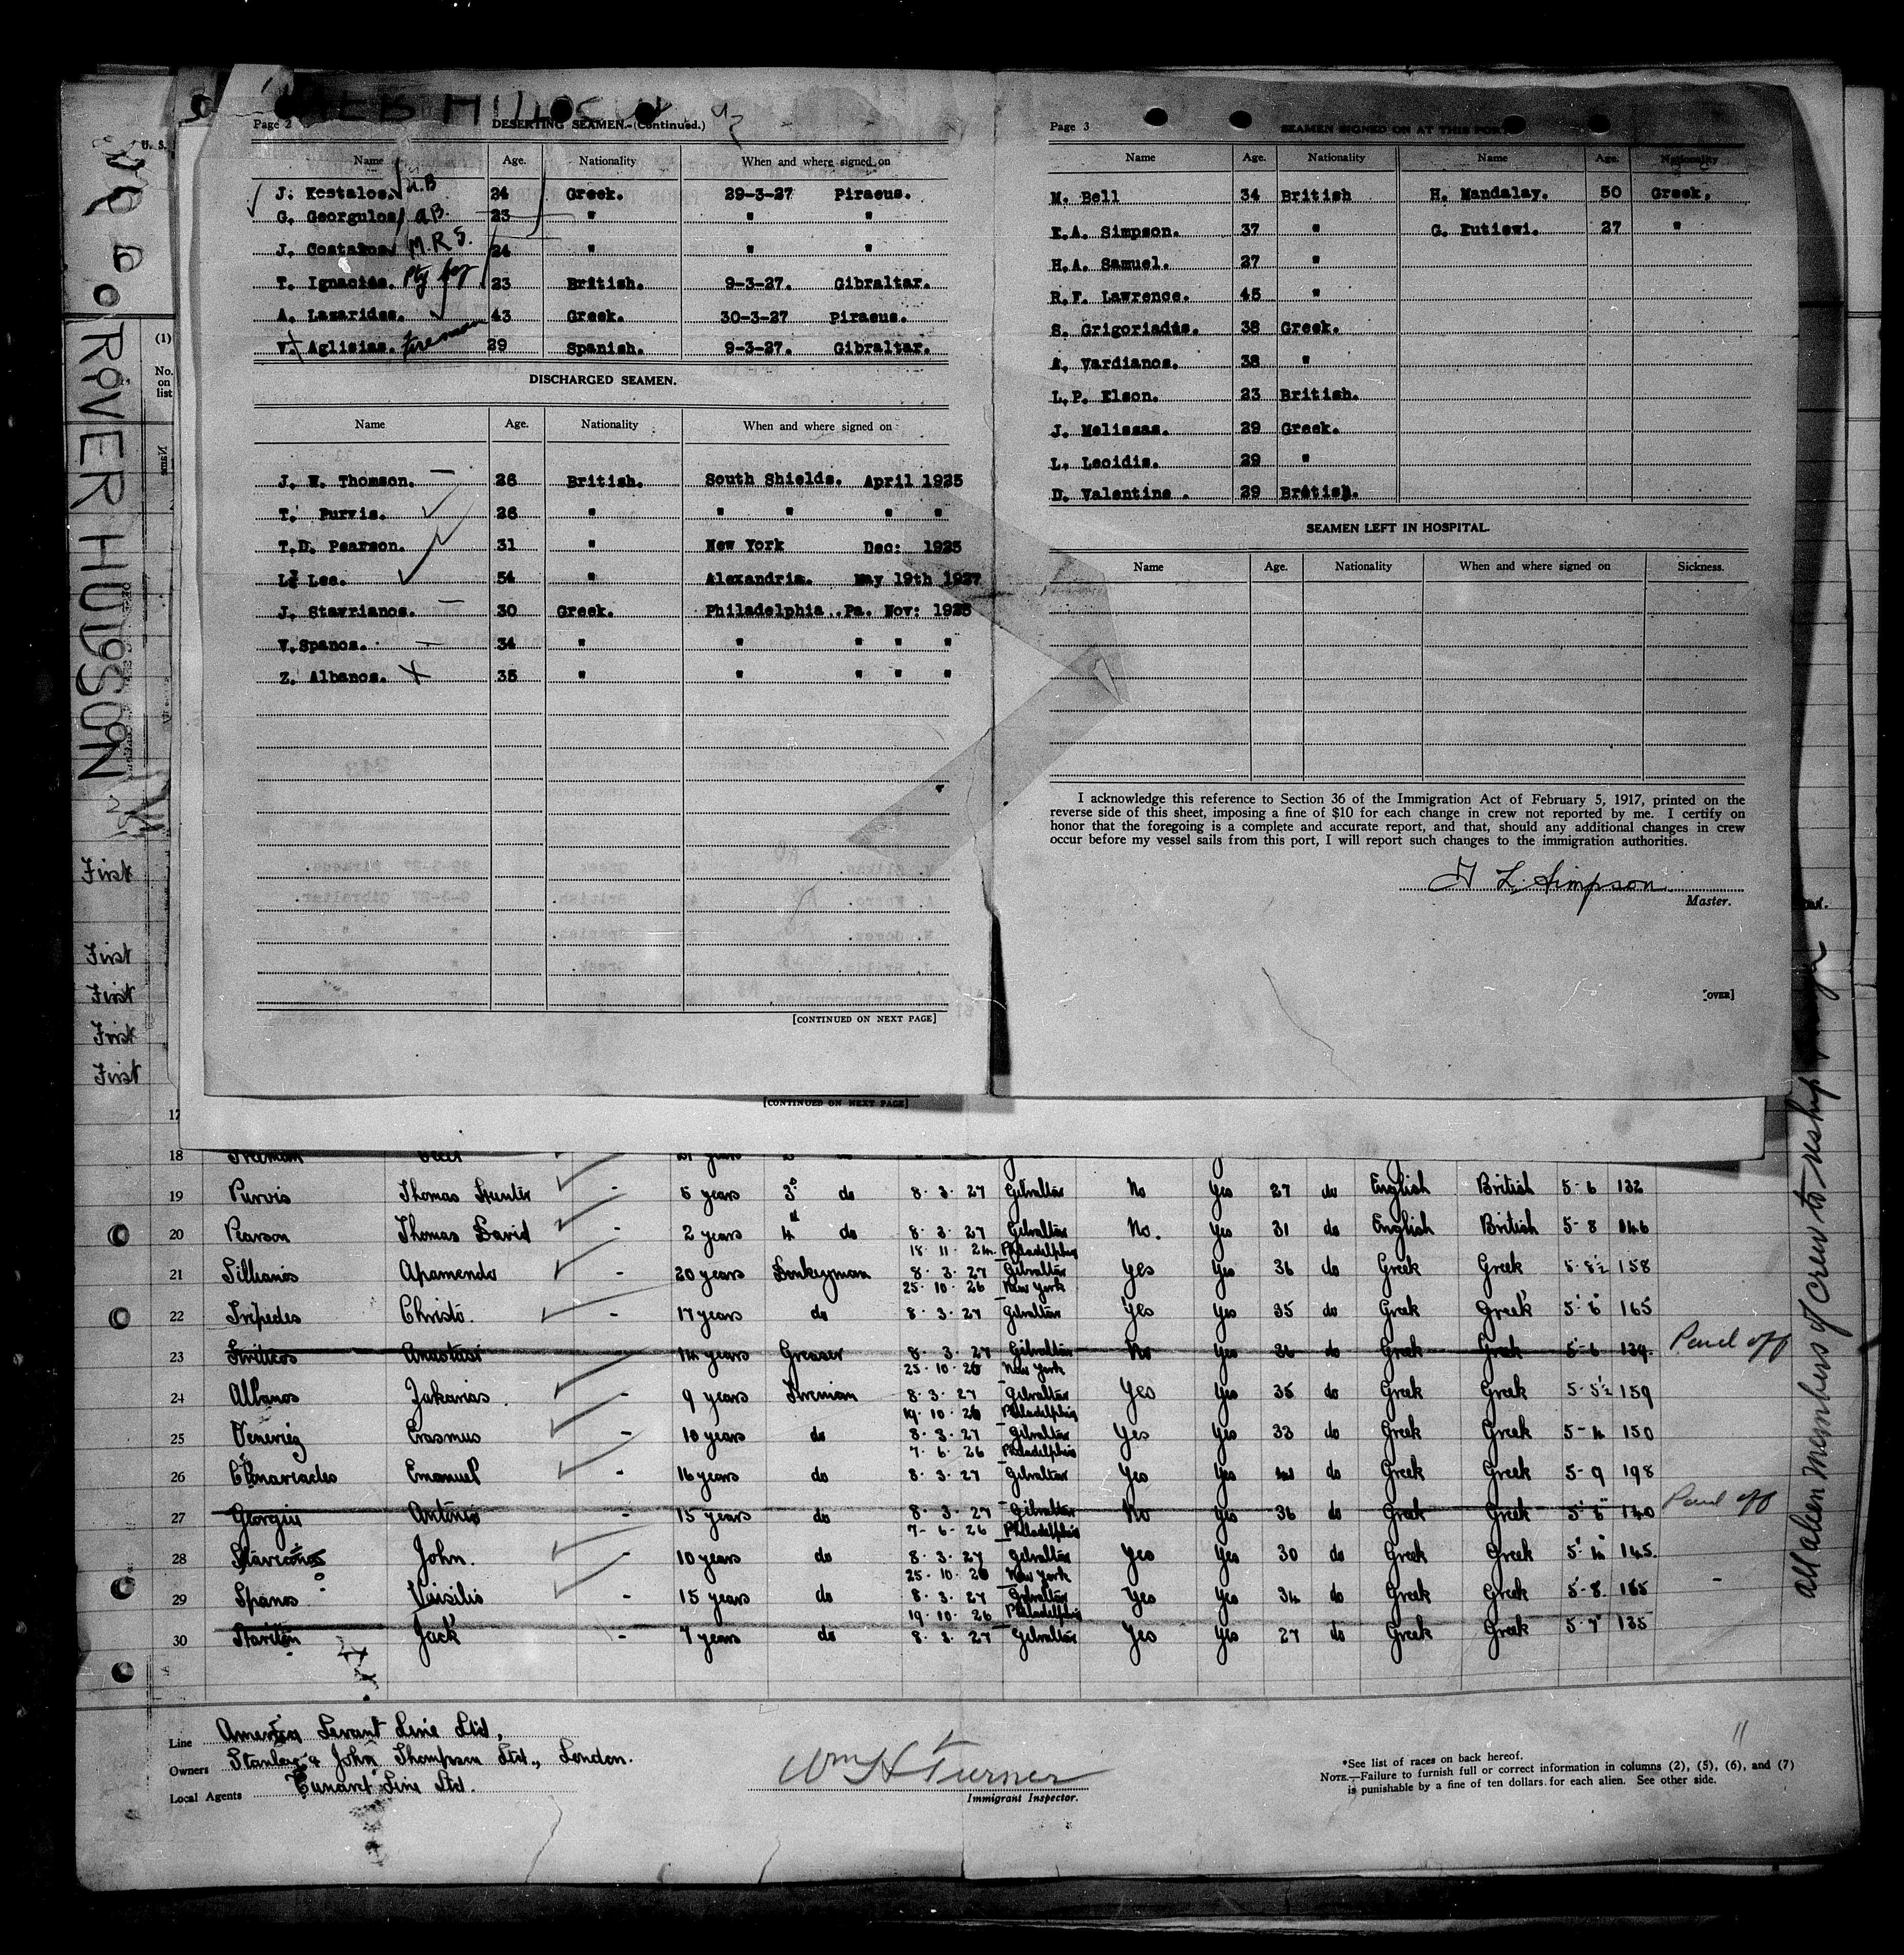 RIVER HUDSON
U. S.
(1)
No. on list
First
First
First
First
First
Page 2
DESERTING SEAMEN.-(Continued.)
Name Age. Nationality When and where signed on
J. Kostalos. A.B 24 Greek. 29-3-27 Piraeus.
G. Georgulos A.B. 23 " " "
J. Costakos M.R.S. 24 " " "
T. Ignacias. 23 British. 9-3-27. Gibraltar.
A. Lazarides. 43 Greek. 30-3-27 Piraeus.
V. Aglisias. fireman 29 Spanish. 9-3-27. Gibraltar.
DISCHARGED SEAMEN.
Name Age. Nationality When and where signed on
J. W. Thomson. 26 British. South Shields. April 1925
T. Purvis. 26 " " " " "
T.D. Pearson. 31 " New York Dec: 1925
L. Lea. 54 " Alexandria. May 19th 1927
J. Stavrianos. 30 Greek. Philadelphia Pa. Nov: 1925
V. Spanos. 34 " " " " "
Z. Albanos. 35 " " " " "
[CONTINUED ON NEXT PAGE]
Page 3
SEAMEN SIGNED ON AT THIS PORT
Name Age. Nationality Name Age. Nationality
M. Bell 34 British H. Mandalay. 50 Greek.
E.A. Simpson. 37 " G. Eutiswi. 27 "
H.A. Samuel. 27 "
R.F. Lawrence. 45 "
S. Grigoriadis. 38 Greek.
A. Vardianos. 38 "
L.P. Elson. 23 British.
J. Melissas. 29 Greek.
L. Lecidis. 29 "
D. Valentine . 29 British.
SEAMEN LEFT IN HOSPITAL.
Name Age. Nationality When and where signed on Sickness.
I acknowledge this reference to Section 36 of the Immigration Act of February 5, 1917, printed on the
reverse side of this sheet, imposing a fine of $10 for each change in crew not reported by me. I certify on
honor that the foregoing is a complete and accurate report, and that, should any additional changes in crew
occur before my vessel sails from this port, I will report such changes to the immigration authorities.
L. Simpson
Master.
[OVER]
[CONTINUED ON NEXT PAGE]
17
18
19 Purvis Thomas Hunter 5 years 3° do 8. 3. 27 Gibraltar No Yes 27 do English British 5-6 132
20 Pearson Thomas David - 2 years 4 do 8. 3. 27 Gibraltar No. Yes 31 do English British 5-8 146
18 11 24 Philadelphia
21 Apamendo - 20 years Donkeyman 8. 3. 27 Gibraltar Yes Yes 36 do Greek Greek 5-8½ 158
25 10 26 New York
22 Tripedes Christo. - 17 years do 8. 3. 27 Gibraltar Yes Yes 35 do Greek Greek 5-6 165
23 Anastasi 14 years Greaser 8. 3. 27 Gibraltar No Yes 36 do Greek Greek 5-6 134. Paid off
25 10 26 New York
24 Albanos Zakarias. - 9 years Fireman 8. 3. 27 Gibraltar Yes Yes 35 do Greek Greek 5-5½ 159
19 10 26 Philadelphia
25 Erasmus - 10 years do 8. 3. 27 Gibraltar Yes Yes 33 do Greek Greek 5-4 150
7. 6. 26 Philadelphia
26 Emanuel - 16 years do 8. 3. 27 Gibraltar Yes Yes do Greek Greek 5-9 198
27 Georgiu Antonio 15 years do 8. 3. 27 Gibraltar No Yes 36 do Greek Greek 5-8 140 Paid off
7- 6. 26 Philadelphia
28 John. - 10 years do 8. 3. 27 Gibraltar Yes Yes 30 do Greek Greek 5-4 145.
25 10 26 New York
29 Spanos Vassilio - 15 years do 8. 3. 27 Gibraltar Yes Yes 34 do Greek Greek 5-8 165
19 10 26 Philadelphia
30 Jack - 7 years do 8. 3. 27 Gibraltar Yes Yes 27 do Greek Greek 5-7 135
All alien members of crew to reship
Line American Levant Line Ltd.
Owners Stanley & John Thompson Ltd., London.
Local Agents Cunard Line Ltd.
Wm H Turner
Immigrant Inspector.
11
*See list of races on back hereof.
NOTE.—Failure to furnish full or correct information in columns (2), (5), (6), and (7)
is punishable by a fine of ten dollars for each alien. See other side.